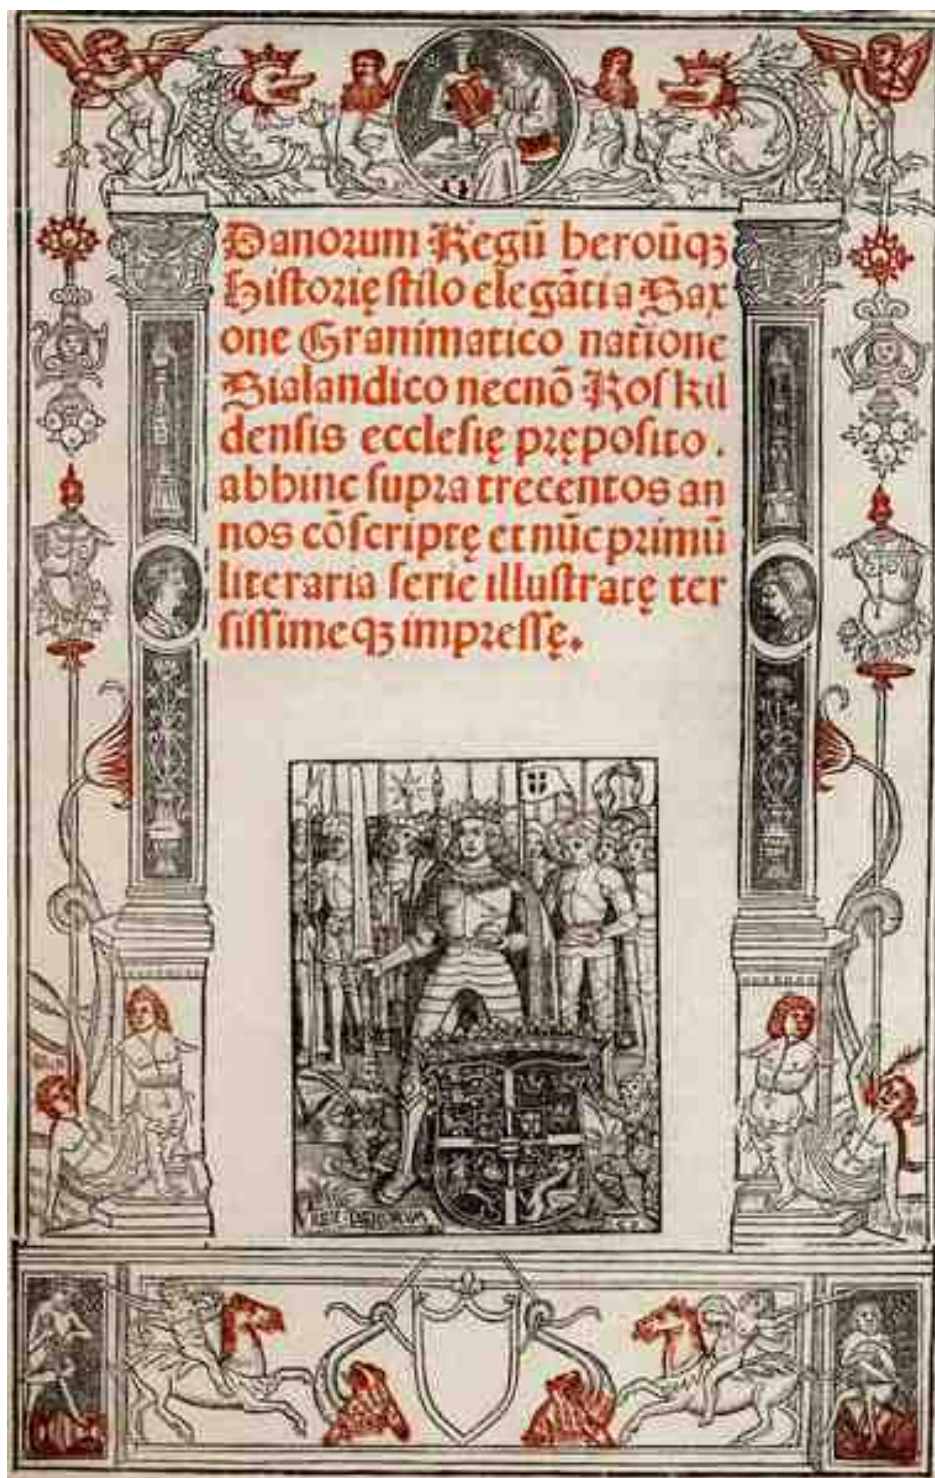 Danorum Regū heroūqꝫ
Historię stilo elegāti a Sax
one Grammatico natione
Sialandico necnō Roskil
densis ecclesię pręposito.
abhinc supra trecentos an
nos cōscriptę et nūc primū
literaria serie illustratę ter
sissimeqꝫ impressę.
REX DANORVM